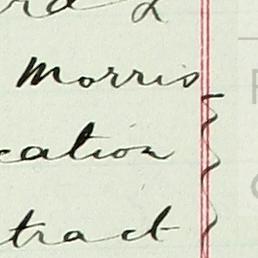 Morris
cation
tract